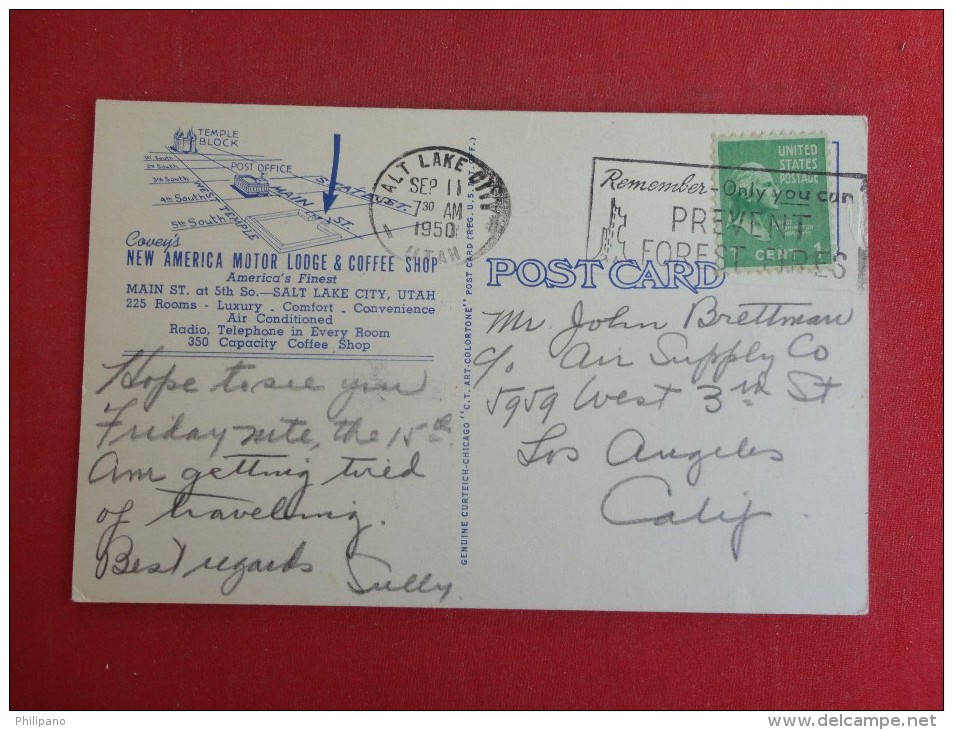 TEMPLE
BLOCK
1st South
2nd South
3rd South
4th South
5th South
POST OFFICE
WEST TEMPLE
MAIN ST.
STATE ST.
Covey's
NEW AMERICA MOTOR LODGE & COFFEE SHOP
America's Finest
MAIN ST. at 5th So.—SALT LAKE CITY, UTAH
225 Rooms - Luxury - Comfort - Convenience
Air Conditioned
Radio, Telephone in Every Room
350 Capacity Coffee Shop
Hope to see you
Friday nite, the 15th.
Am getting tired
of traveling.
Best regards
Sully.
GENUINE CURTEICH-CHICAGO "C.T. ART-COLORTONE" POST CARD (REG. U.S. PAT. OFF.)
SALT LAKE CITY
SEP 11
7 30 AM
1950
UTAH
Remember - Only you can
PREVENT
FOREST FIRES
UNITED
STATES
POSTAGE
CENT 1
POST CARD
Mr. John Brettman
c/o Air Supply Co
5959 West 3rd St
Los Angeles
Calif
Philipano
www.delcampe.net